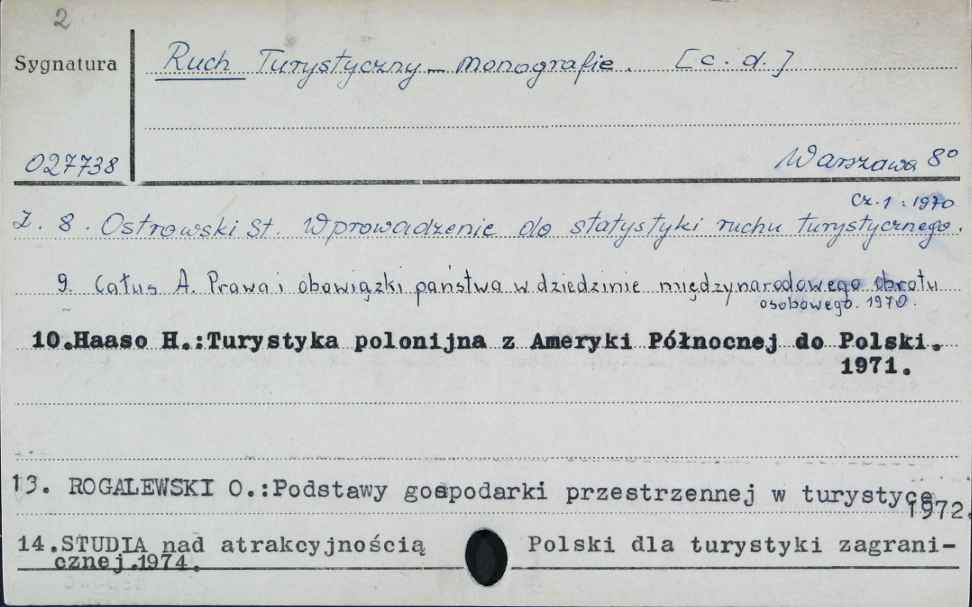 2
Sygnatura
Ruch Turystyczny – monografie. [c. d.]
027738
Warszawa 8º
Cz. 1. 1970
Z. 8. Ostrowski St. Wprowadzenie do statystyki ruchu turystycznego.
9. Całus A. Prawa i obowiązki państwa w dziedzinie międzynarodowego obrotu
osobowego. 1970.
10.Haaso H.:Turystyka polonijna z Ameryki Północnej do Polski.
1971.
13. ROGALEWSKI O.:Podstawy gospodarki przestrzennej w turystyce
1972.
14.STUDIA nad atrakcyjnością Polski dla turystyki zagrani-
cznej.1974.